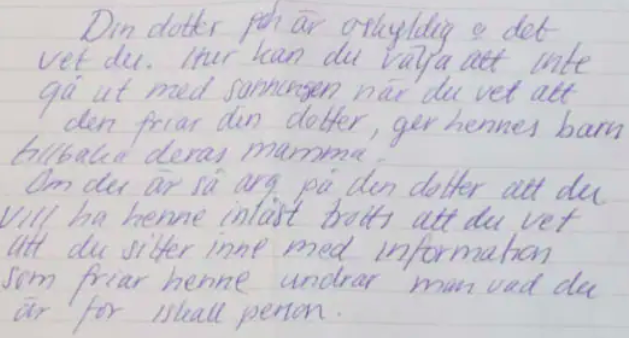 Din dotter är oskyldig o det
vet du. Hur kan du välja att inte
gå ut med sanningen när du vet att
den friar din dotter, ger hennes barn
tillbaka deras mamma.
Om du är så arg på din dotter att du
vill ha henne inlåst trotts att du vet
att du sitter inne med information
som friar henne undrar man vad du
är för iskall person.